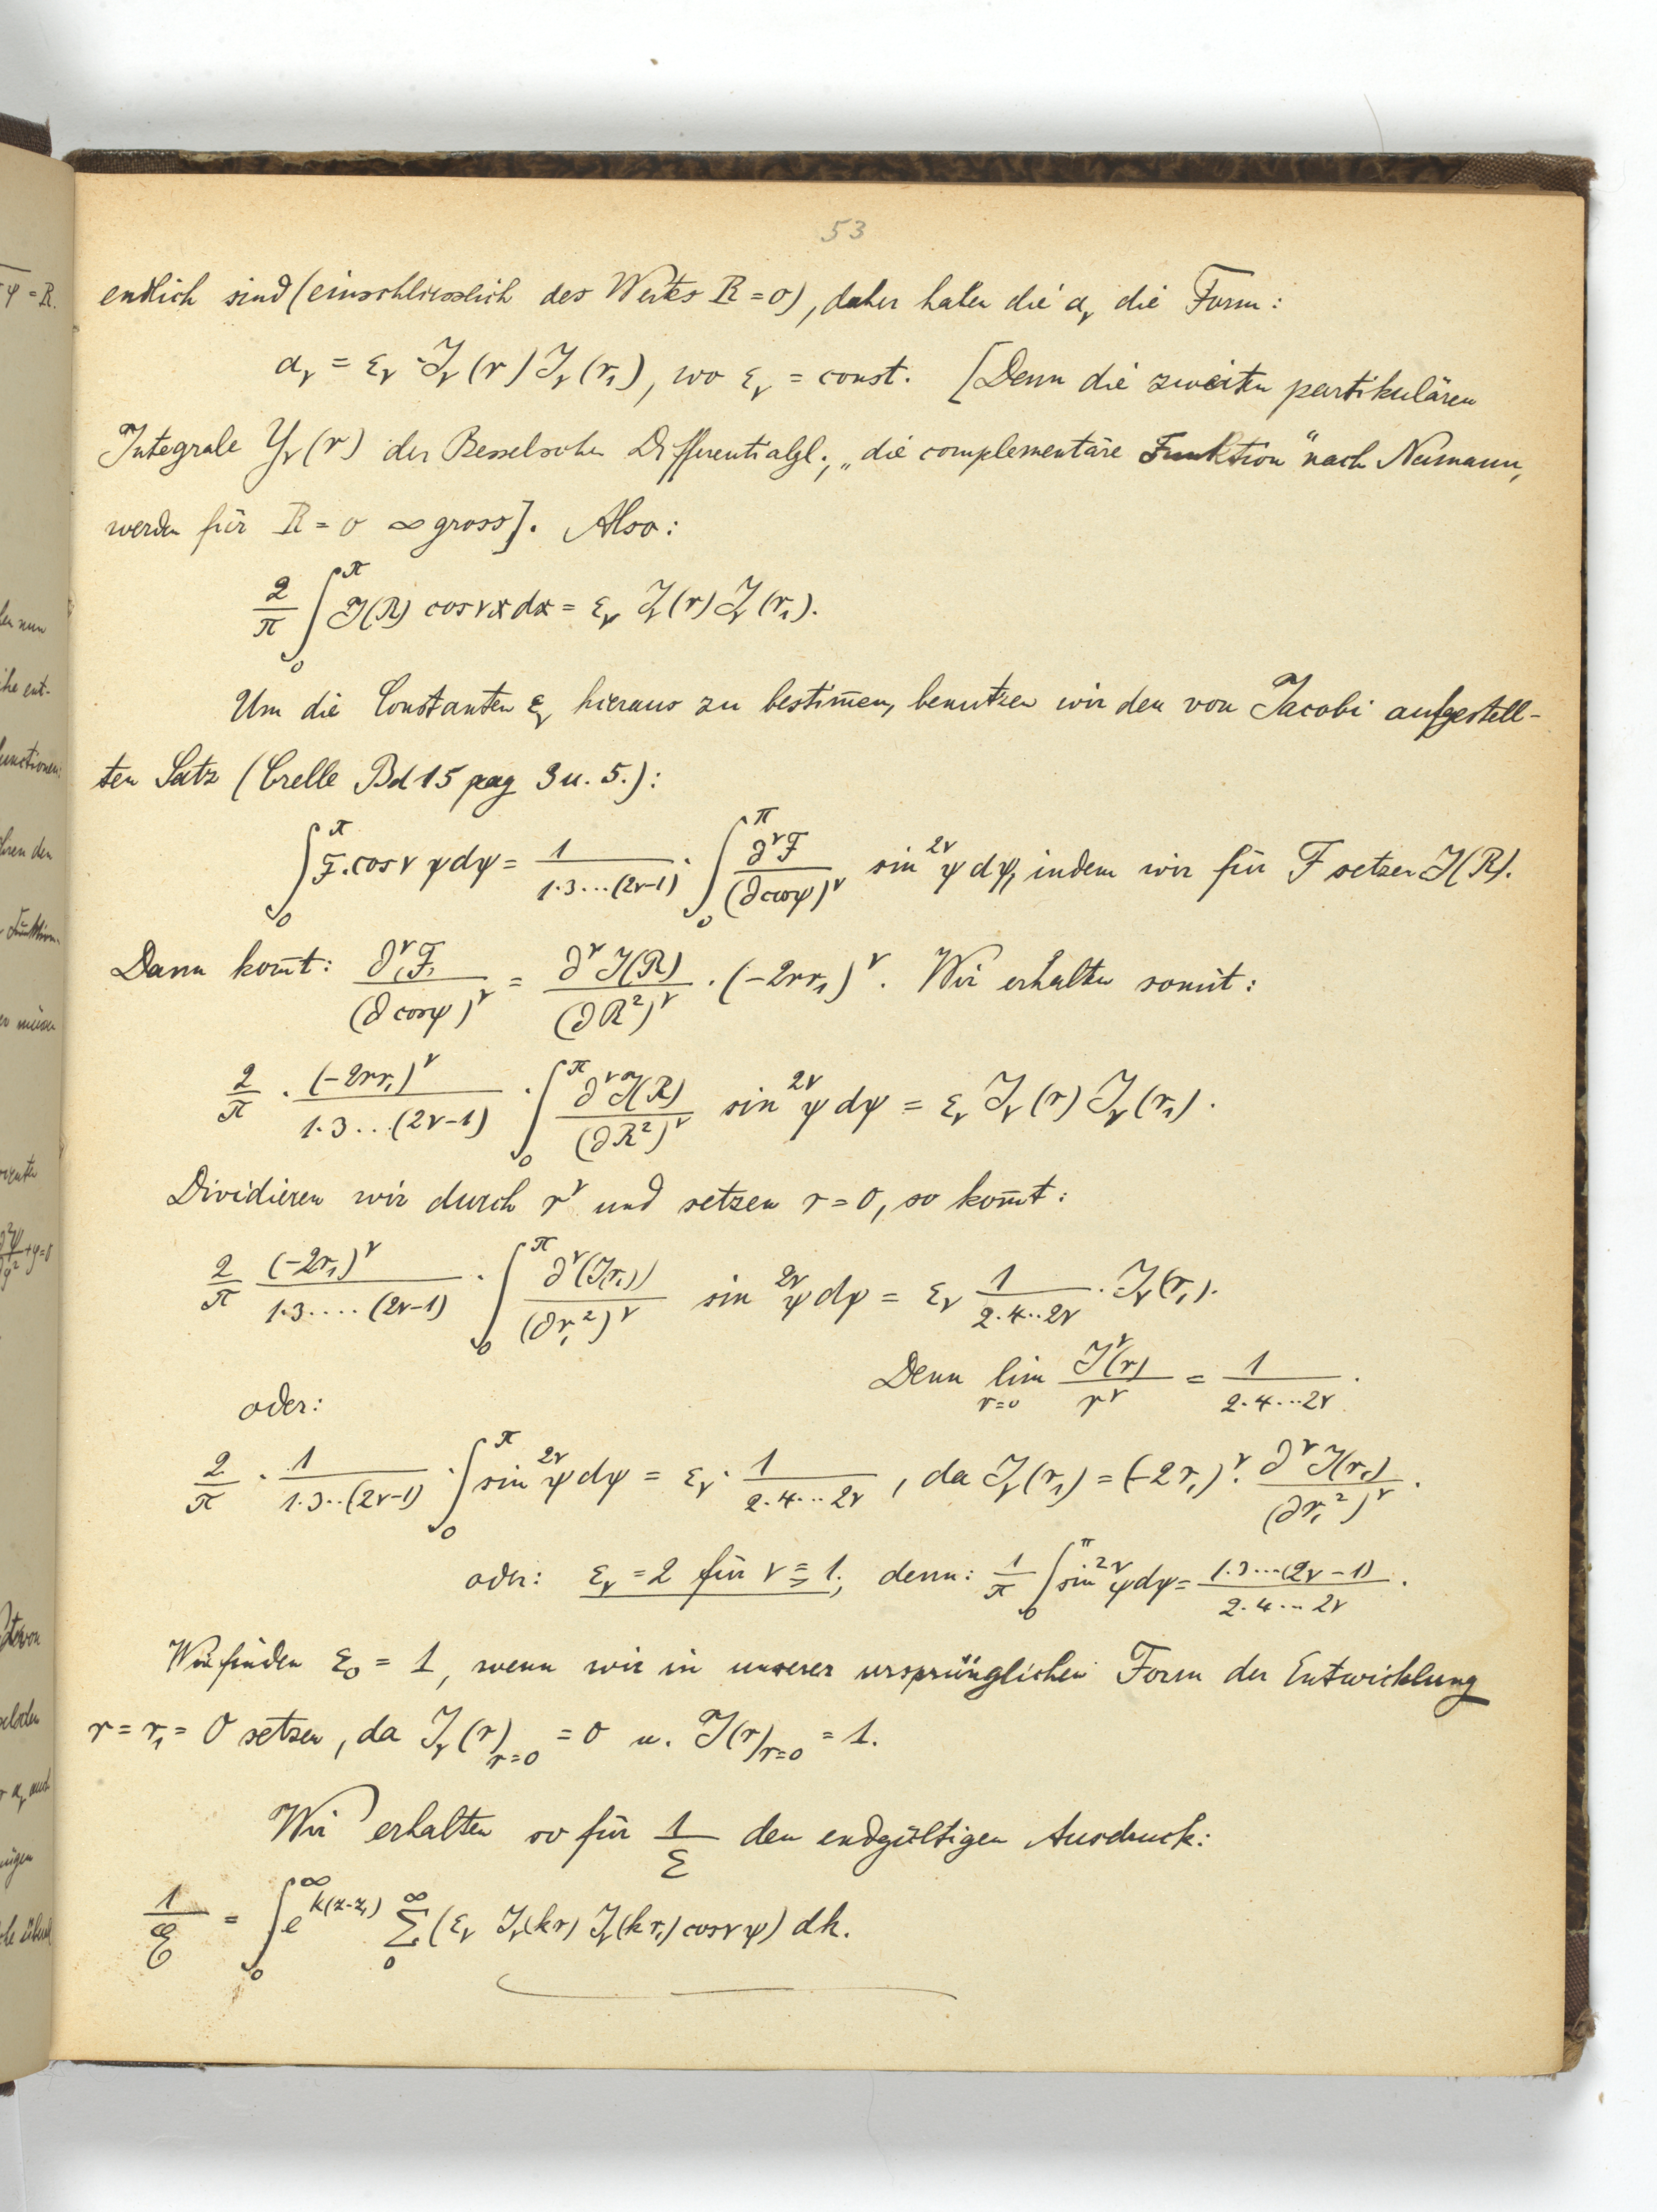 53
endlich sind (einschliesslich des Wertes R = 0), daher haben die α_ν die Form:
α_ν = ε_ν · J_ν(r) J_ν(r₁), wo ε_ν = const. [Denn die zweiten partikulären
Integrale Y_ν(r) der Besselschen Differentialgl., „die complementäre Funktion" nach Neumann,
werden für R = 0 ∞ gross]. Also:
2/π ∫₀^π J(R) cos νx dx = ε_ν J_ν(r) J_ν(r₁).
Um die Constanten ε_ν hieraus zu bestim̄en, benutzen wir den von Jacobi aufgestell-
ten Satz (Crelle Bd 15 pag 3 u. 5.):
∫₀^π F · cos ν ψ dψ = 1/(1·3···(2ν-1)) · ∫₀^π ∂^νF/(∂cosψ)^ν sin^{2ν}ψ dψ, indem wir für F setzen J(R).
Dann kom̄t: ∂^νF/(∂cosψ)^ν = ∂^νJ(R)/(∂R²)^ν · (-2rr₁)^ν. Wir erhalten somit:
2/π · (-2rr₁)^ν/(1·3...(2ν-1)) · ∫₀^π ∂^νJ(R)/(∂R²)^ν sin^{2ν}ψ dψ = ε_ν J_ν(r) J_ν(r₁).
Dividieren wir durch r^ν und setzen r = 0, so kom̄t:
2/π (-2r₁)^ν/(1·3....(2ν-1)) · ∫₀^π ∂^ν(J(r₁))/(∂r₁²)^ν sin^{2ν}ψ dψ = ε_ν 1/(2·4··2ν) · J_ν(r₁).
Denn lim_{r=0} J^ν(r)/r^ν = 1/(2·4···2ν).
oder:
2/π · 1/(1·3··(2ν-1)) · ∫₀^π sin^{2ν}ψ dψ = ε_ν · 1/(2·4···2ν), da J_ν(r₁) = (-2r₁)^ν · ∂^νJ(r₁)/(∂r₁²)^ν.
oder: ε_ν = 2 für ν ≧ 1; denn: 1/π ∫₀^π sin^{2ν}ψ dψ = 1·3···(2ν-1)/(2·4···2ν).
Wir finden ε₀ = 1, wenn wir in unserer ursprünglichen Form der Entwicklung
r = r₁ = 0 setzen, da J_ν(r)_{r=0} = 0 u. J(r)_{r=0} = 1.
Wir erhalten so für 1/E den endgültigen Ausdruck:
1/E = ∫₀^∞ e^{k(z-z₁)} Σ₀^∞ (ε_ν J_ν(kr) J_ν(kr₁) cos ν ψ) dk.